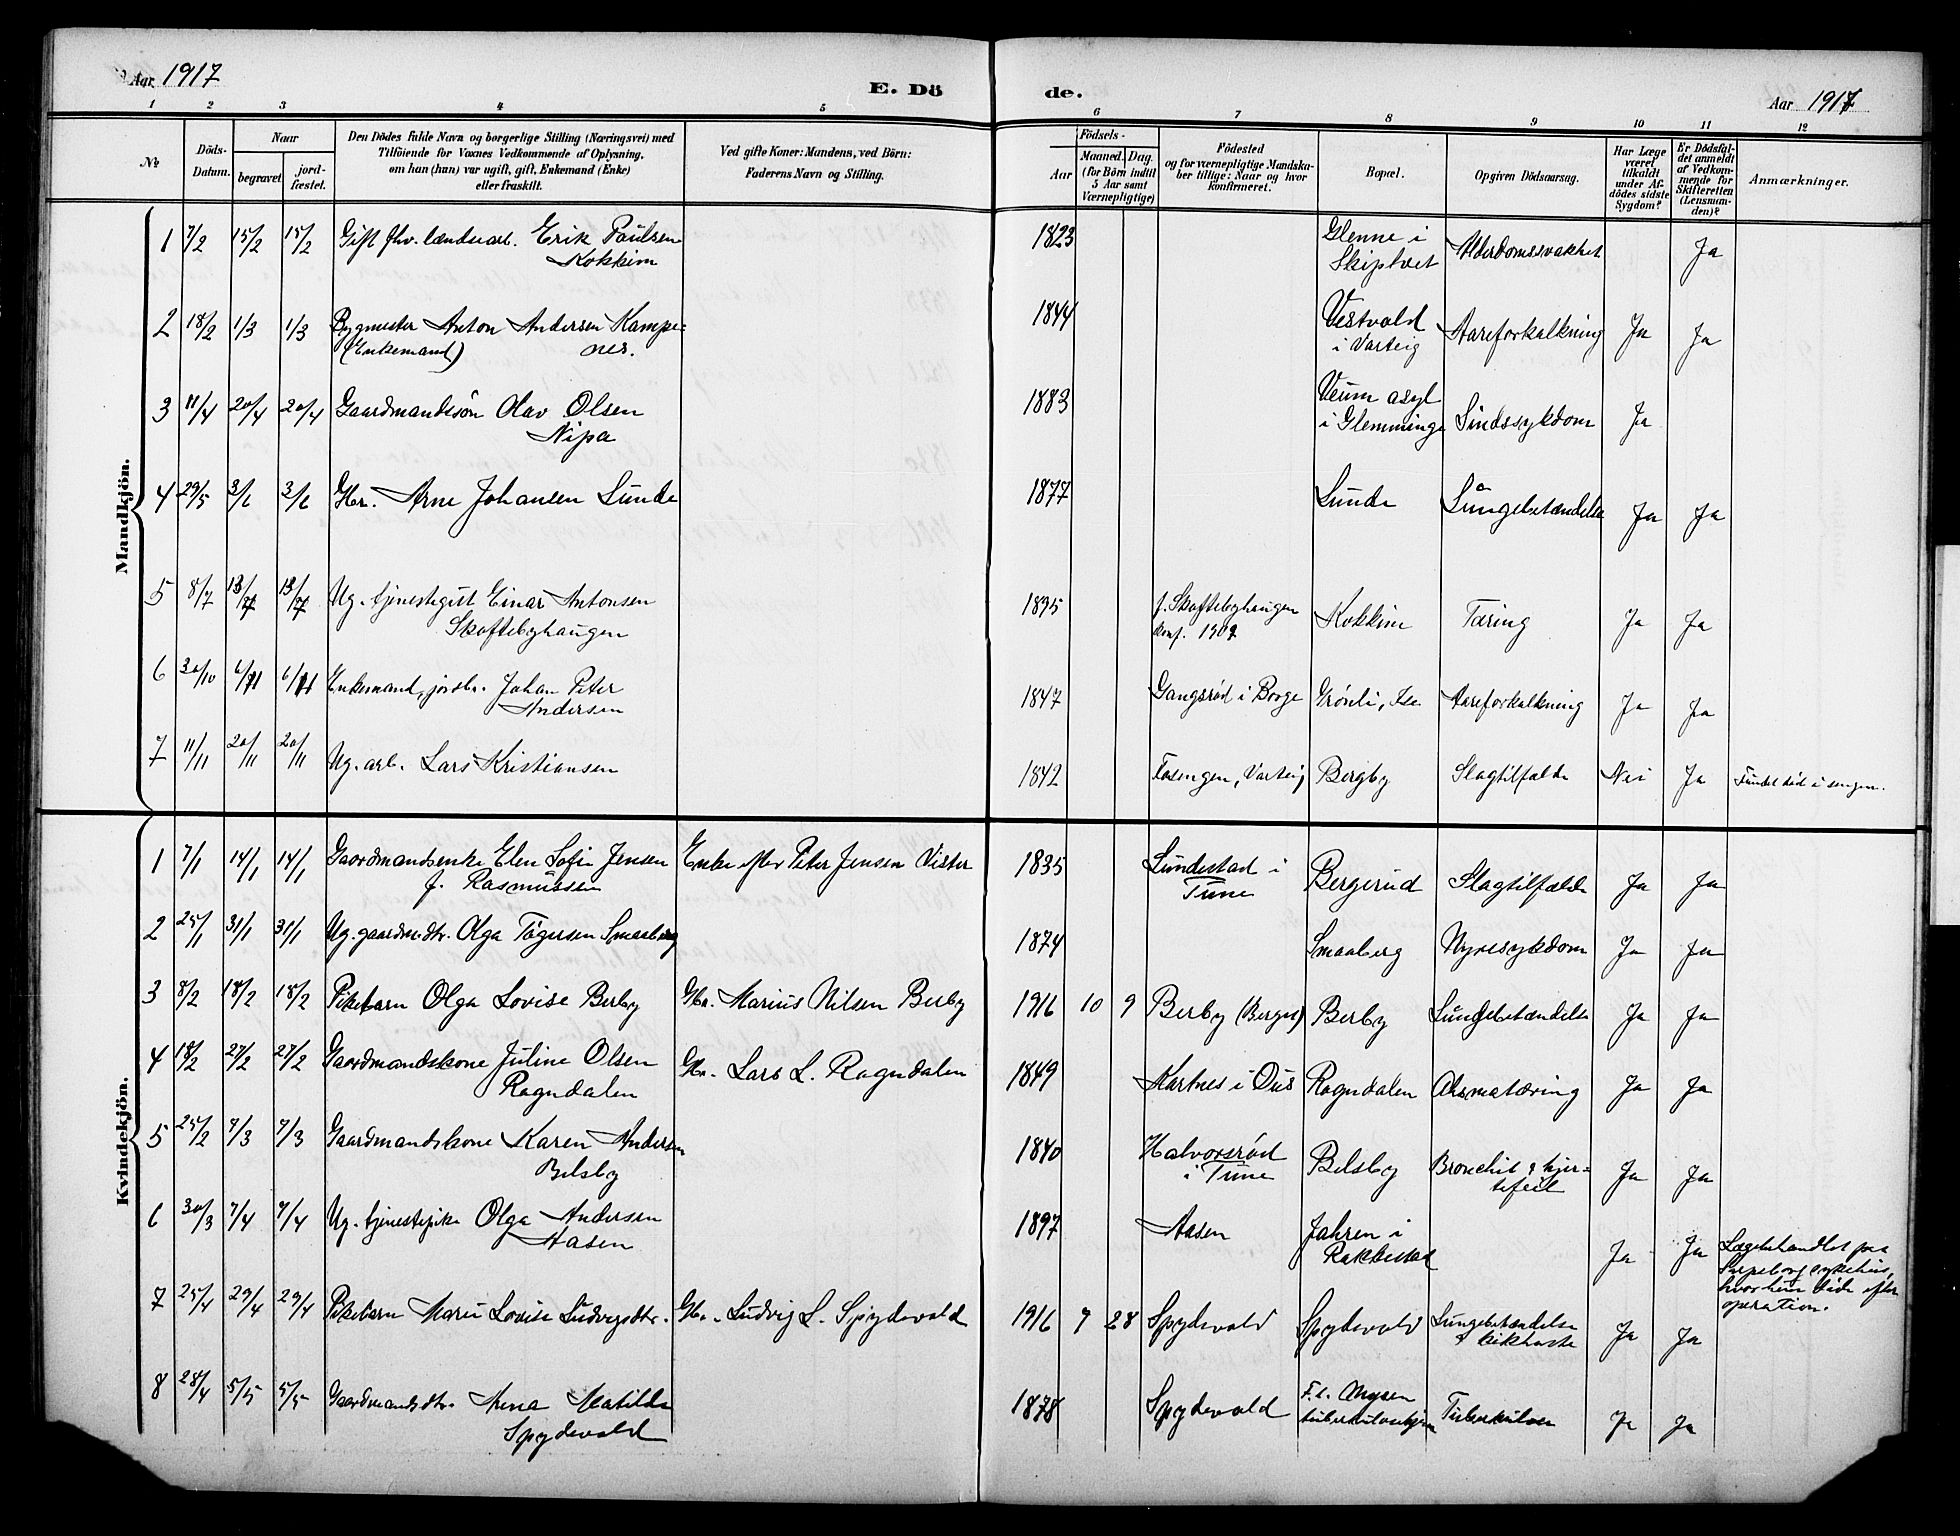 Aar 1917
E. Dö
de.
Aar 1917
1 2 3 4 5 6 7 8 9 10 11 12
№
Döds-
Datum.
Naar
begravet
jord-
fæstet.
Den Dödes fulde Navn og borgerlige Stilling (Næringsvei) med
Tilföiende for Voxnes Vedkommende af Oplysning,
om han (hun) var ugift, gift, Enkemand (Enke)
eller fraskilt.
Ved gifte Koner: Mandens, ved Börn:
Faderens Navn og Stilling.
Födsels-
Aar
Maaned. Dag.
(for Börn indtil
5 Aar samt
Værnepligtige)
Födested
og for værnepligtige Mandska-
ber tillige: Naar og hvor
konfirmeret.
Bopæl.
Opgiven Dödsaarsag.
Har Læge
været
tilkaldt
under Af-
dödes sidste
Sygdom?
Er Dödsfal-
det anmeldt
af Vedkom-
mende for
Skifteretten
(Lensman-
den)?
Anmærkninger.
Mandkjön.
1 7/2 15/2 15/2 Gift fhv. Erik Paulsen 1823 Glenne i Alderdomssvakhet Ja
Kokkim Skiptvet
2 18/2 1/3 1/3 Bygmester Anton Andersen Kampe- 1844 Vestvold Aareforkalkning Ja Ja
(Enkemand) nes. i Varteig
3 11/4 20/4 20/4 Gaardmandssön Olav Olsen 1883 Veum asyl Sindssykdom Ja
Nipa i Glemminge
4 29/5 3/6 3/6 Gbr. Arne Johansen Lunde 1877 Lunde Lungebetændelse Ja Ja
5 8/7 13/7 13/7 Ug. tjenestegut Einar Antonsen 1895 f. Skoftebyhaugen Kokkim Tæring Ja Ja
Skoftebyhaugen konf. 1909
6 30/10 6/11 6/11 Enkemand, jordbr. Johan Peter 1847 Gangsrød i Borge Grönli, Ise Aareforkalkning Ja Ja
Andersen
7 11/11 20/11 20/11 Ug. arb. Lars Kristiansen 1842 Fosengen, Varteig Bergby Slagtilfælde Nei Ja Fundet död i sengen.
Kvindekjön.
1 7/1 14/1 14/1 Gaardmandsenke Elen Sofie Jensen Enke efter Peter Jensen Vister 1835 Lundestad i Bergerud Slagtilfælde Ja Ja
f. Rasmussen Tune
2 25/1 31/1 31/1 Ug. gaardm.dtr. Olga Tögersen Smaaberg 1874 Smaaberg Nyresykdom Ja Ja
3 8/2 18/2 18/2 Pikebarn Olga Lovise Berby Gbr. Marius Nilsen Berby 1916 10 9 Berby Berby Lungebetændelse Ja Ja
4 18/2 27/2 27/2 Gaardmandskone Juline Olsen Gbr. Lars L. Rogndalen 1849 Kartnes i Ous Rogndalen Ja Ja
Rogndalen
5 25/2 7/3 7/3 Gaardmandskone Karen Andersen 1840 Halvorsrød Belsby Bronchit & hjer- Ja Ja
Belsby i Tune tefeil
6 30/3 7/4 7/4 Ug. tjenestepike Olga Andersen 1897 Aasen Jahren i Ja Ja Lægebehandlet paa
Aasen Rakkestad Sarpsborg sykehus,
hvor hun döde efter
operation.
7 25/4 29/4 29/4 Pikebarn Marie Lovise Ludvigsdtr. Gbr. Ludvig L. Spydevold 1916 7 28 Spydevold Spydevold Lungebetændelse Ja Ja
& kikhoste
8 28/4 5/5 5/5 Gaardmandsdtr. Anna Matilde 1878 Spydevold F.t. Mysen Tuberkulose Ja Ja
Spydevold tuberkulosehjem